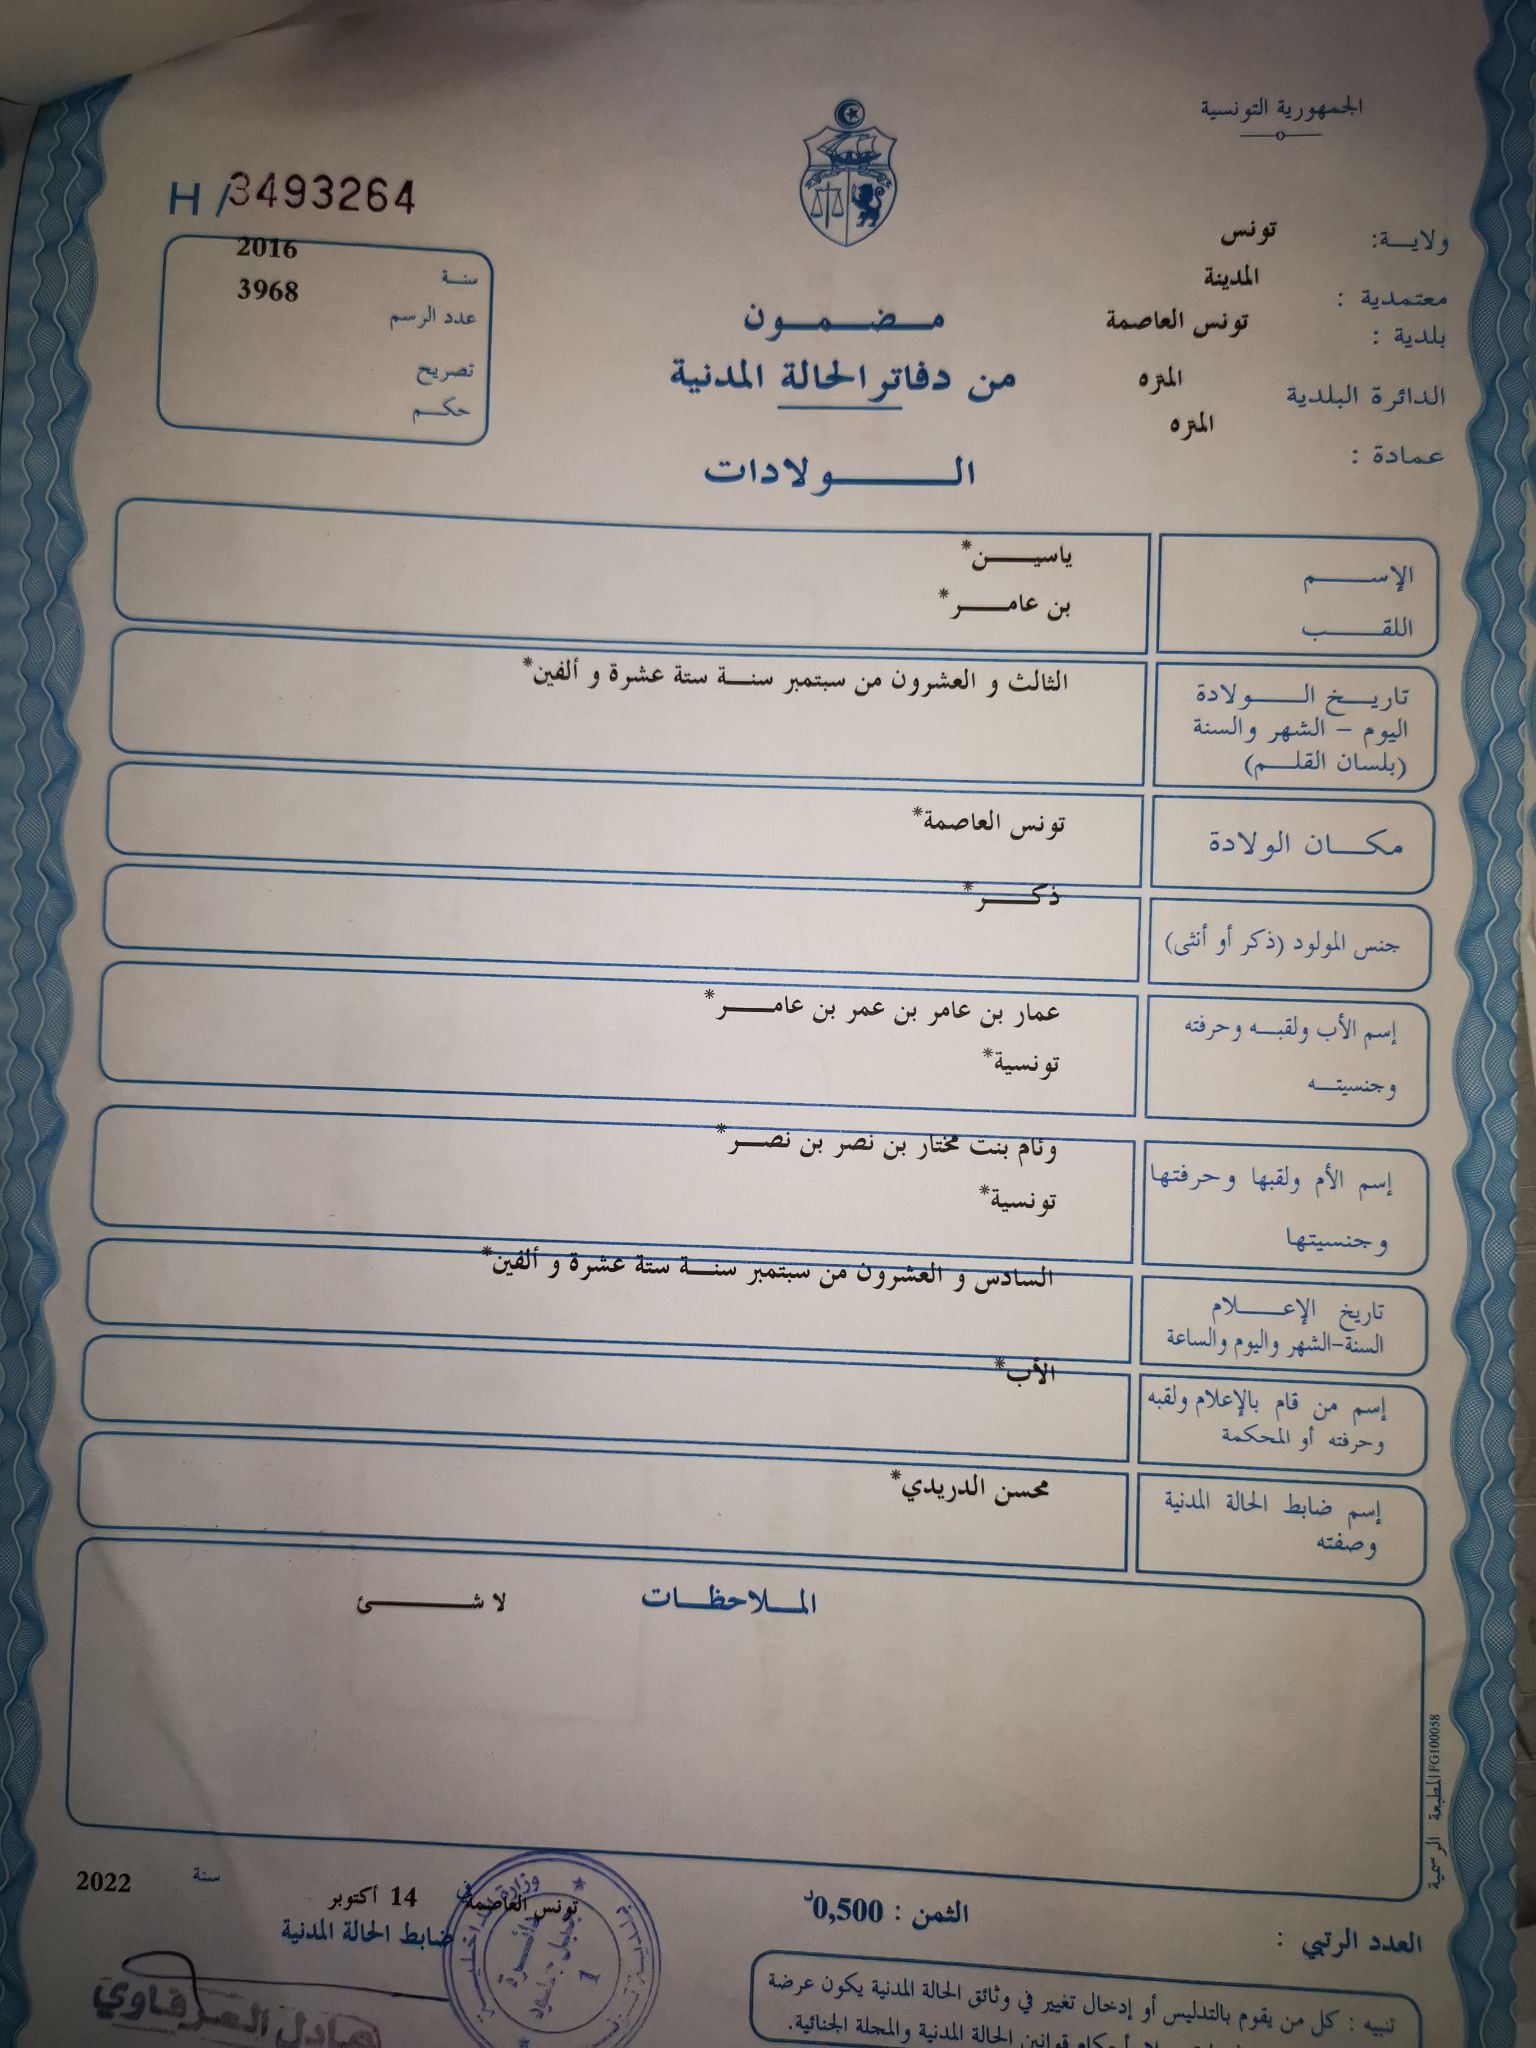 الجمهورية التونسية
H/3493264
ولايـــة: تونس
معتمدية : المدينة
بلدية : تونس العاصمة
الدائرة البلدية المنزه
عمادة : المنزه
سنـة 2016
عدد الرسم 3968
تصريح
حكـم
مـضـمـون
من دفاتر الحالة المدنية
الـولادات
الإســـم ياسيـــن*
اللقـــب بن عامـــر*
تاريـخ الـــولادة الثالث و العشرون من سبتمبر سنـة ستة عشرة و ألفين*
اليوم – الشهر والسنة
(بلسان القلـم)
مكـــان الولادة تونس العاصمة*
جنس المولود (ذكر أو أنثى) ذكـــر*
إسم الأب ولقبـه وحرفته عمار بن عامر بن عمر بن عامـــر*
وجنسيتـــه تونسية*
إسم الأم ولقبها وحرفتها وئام بنت مختار بن نصر بن نصـــر*
وجنسيتها تونسية*
تاريخ الإعـــلام السادس و العشرون من سبتمبر سنـة ستة عشرة و ألفين*
السنة-الشهر واليوم والساعة
إسم من قام بالإعلام ولقبه الأب*
وحرفته أو المحكمة
إسم ضابط الحالة المدنية محسن الدريدي*
وصفته
المـلاحظـات لا شـــئ
المطبعة الرسمية FG100058
تونس العاصمة في 14 أكتوبر سنة 2022
ضابط الحالة المدنية
الثمن : 0,500د
العدد الرتبي :
تنبيه : كل من يقوم بالتدليس أو إدخال تغيير في وثائق الحالة المدنية يكون عرضة
أحكام قوانين الحالة المدنية والمجلة الجنائية.
وزارة الداخلية
دائرة
1